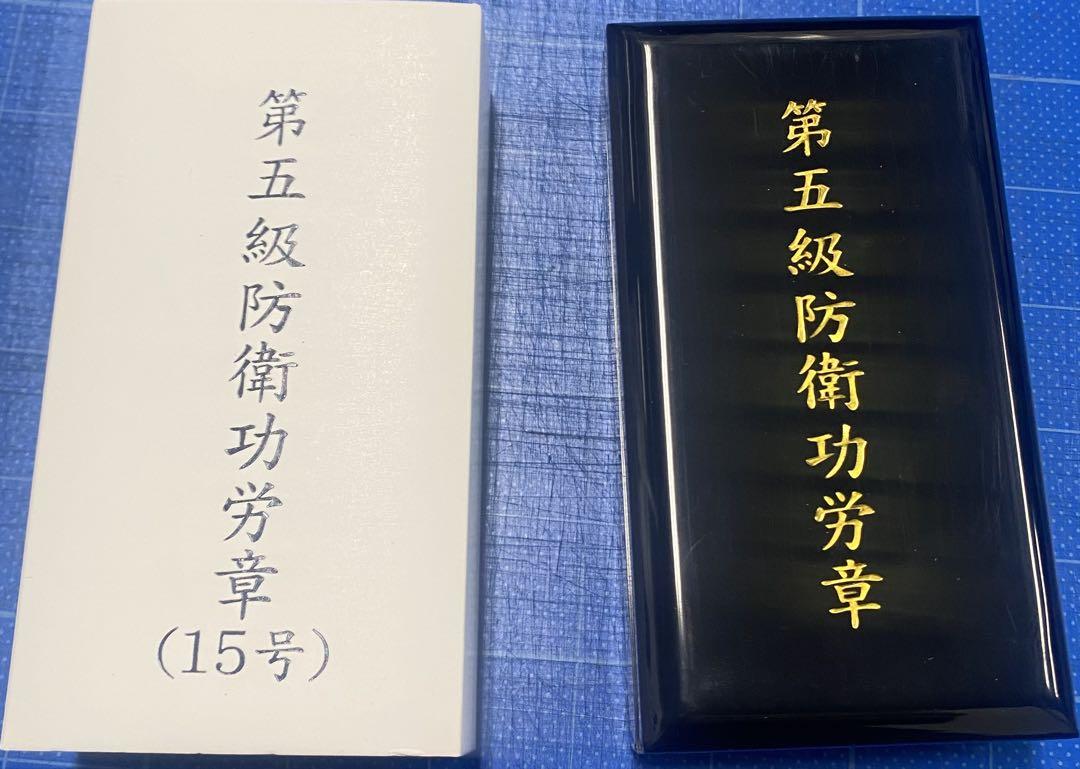 第五級防衛功労章
(15号)
第五級防衛功労章